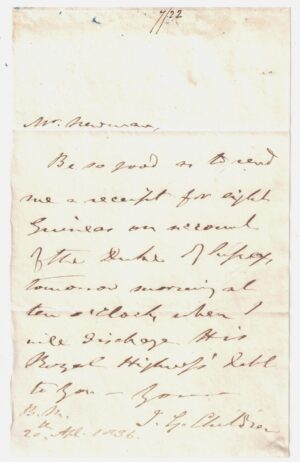 7/22
Mr. Newman,
Be so good as to send
me a receipt for eight
Guineas on account
of the Duke of Sussex,
tomorrow morning at
ten o'Clock, when I
will discharge His
Royal Highness' debt
to you – Yours
J. G. Children
B. M.
20th Apl. 1836.